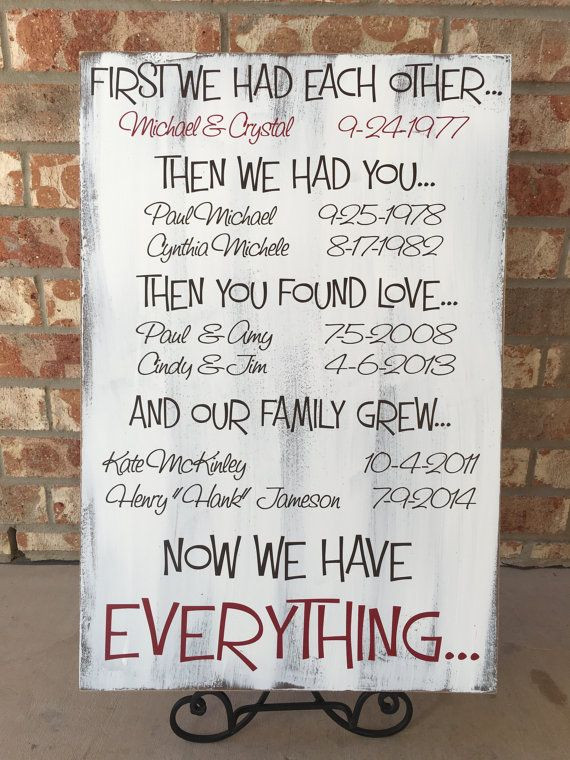 FIRST WE HAD EACH OTHER...
Michael & Crystal 9-24-1977
THEN WE HAD YOU...
Paul Michael 9-25-1978
Cynthia Michele 8-17-1982
THEN YOU FOUND LOVE...
Paul & Amy 7-5-2008
Cindy & Jim 4-6-2013
AND OUR FAMILY GREW...
Kate McKinley 10-4-2011
Henry "Hank" Jameson 7-9-2014
NOW WE HAVE
EVERYTHING...